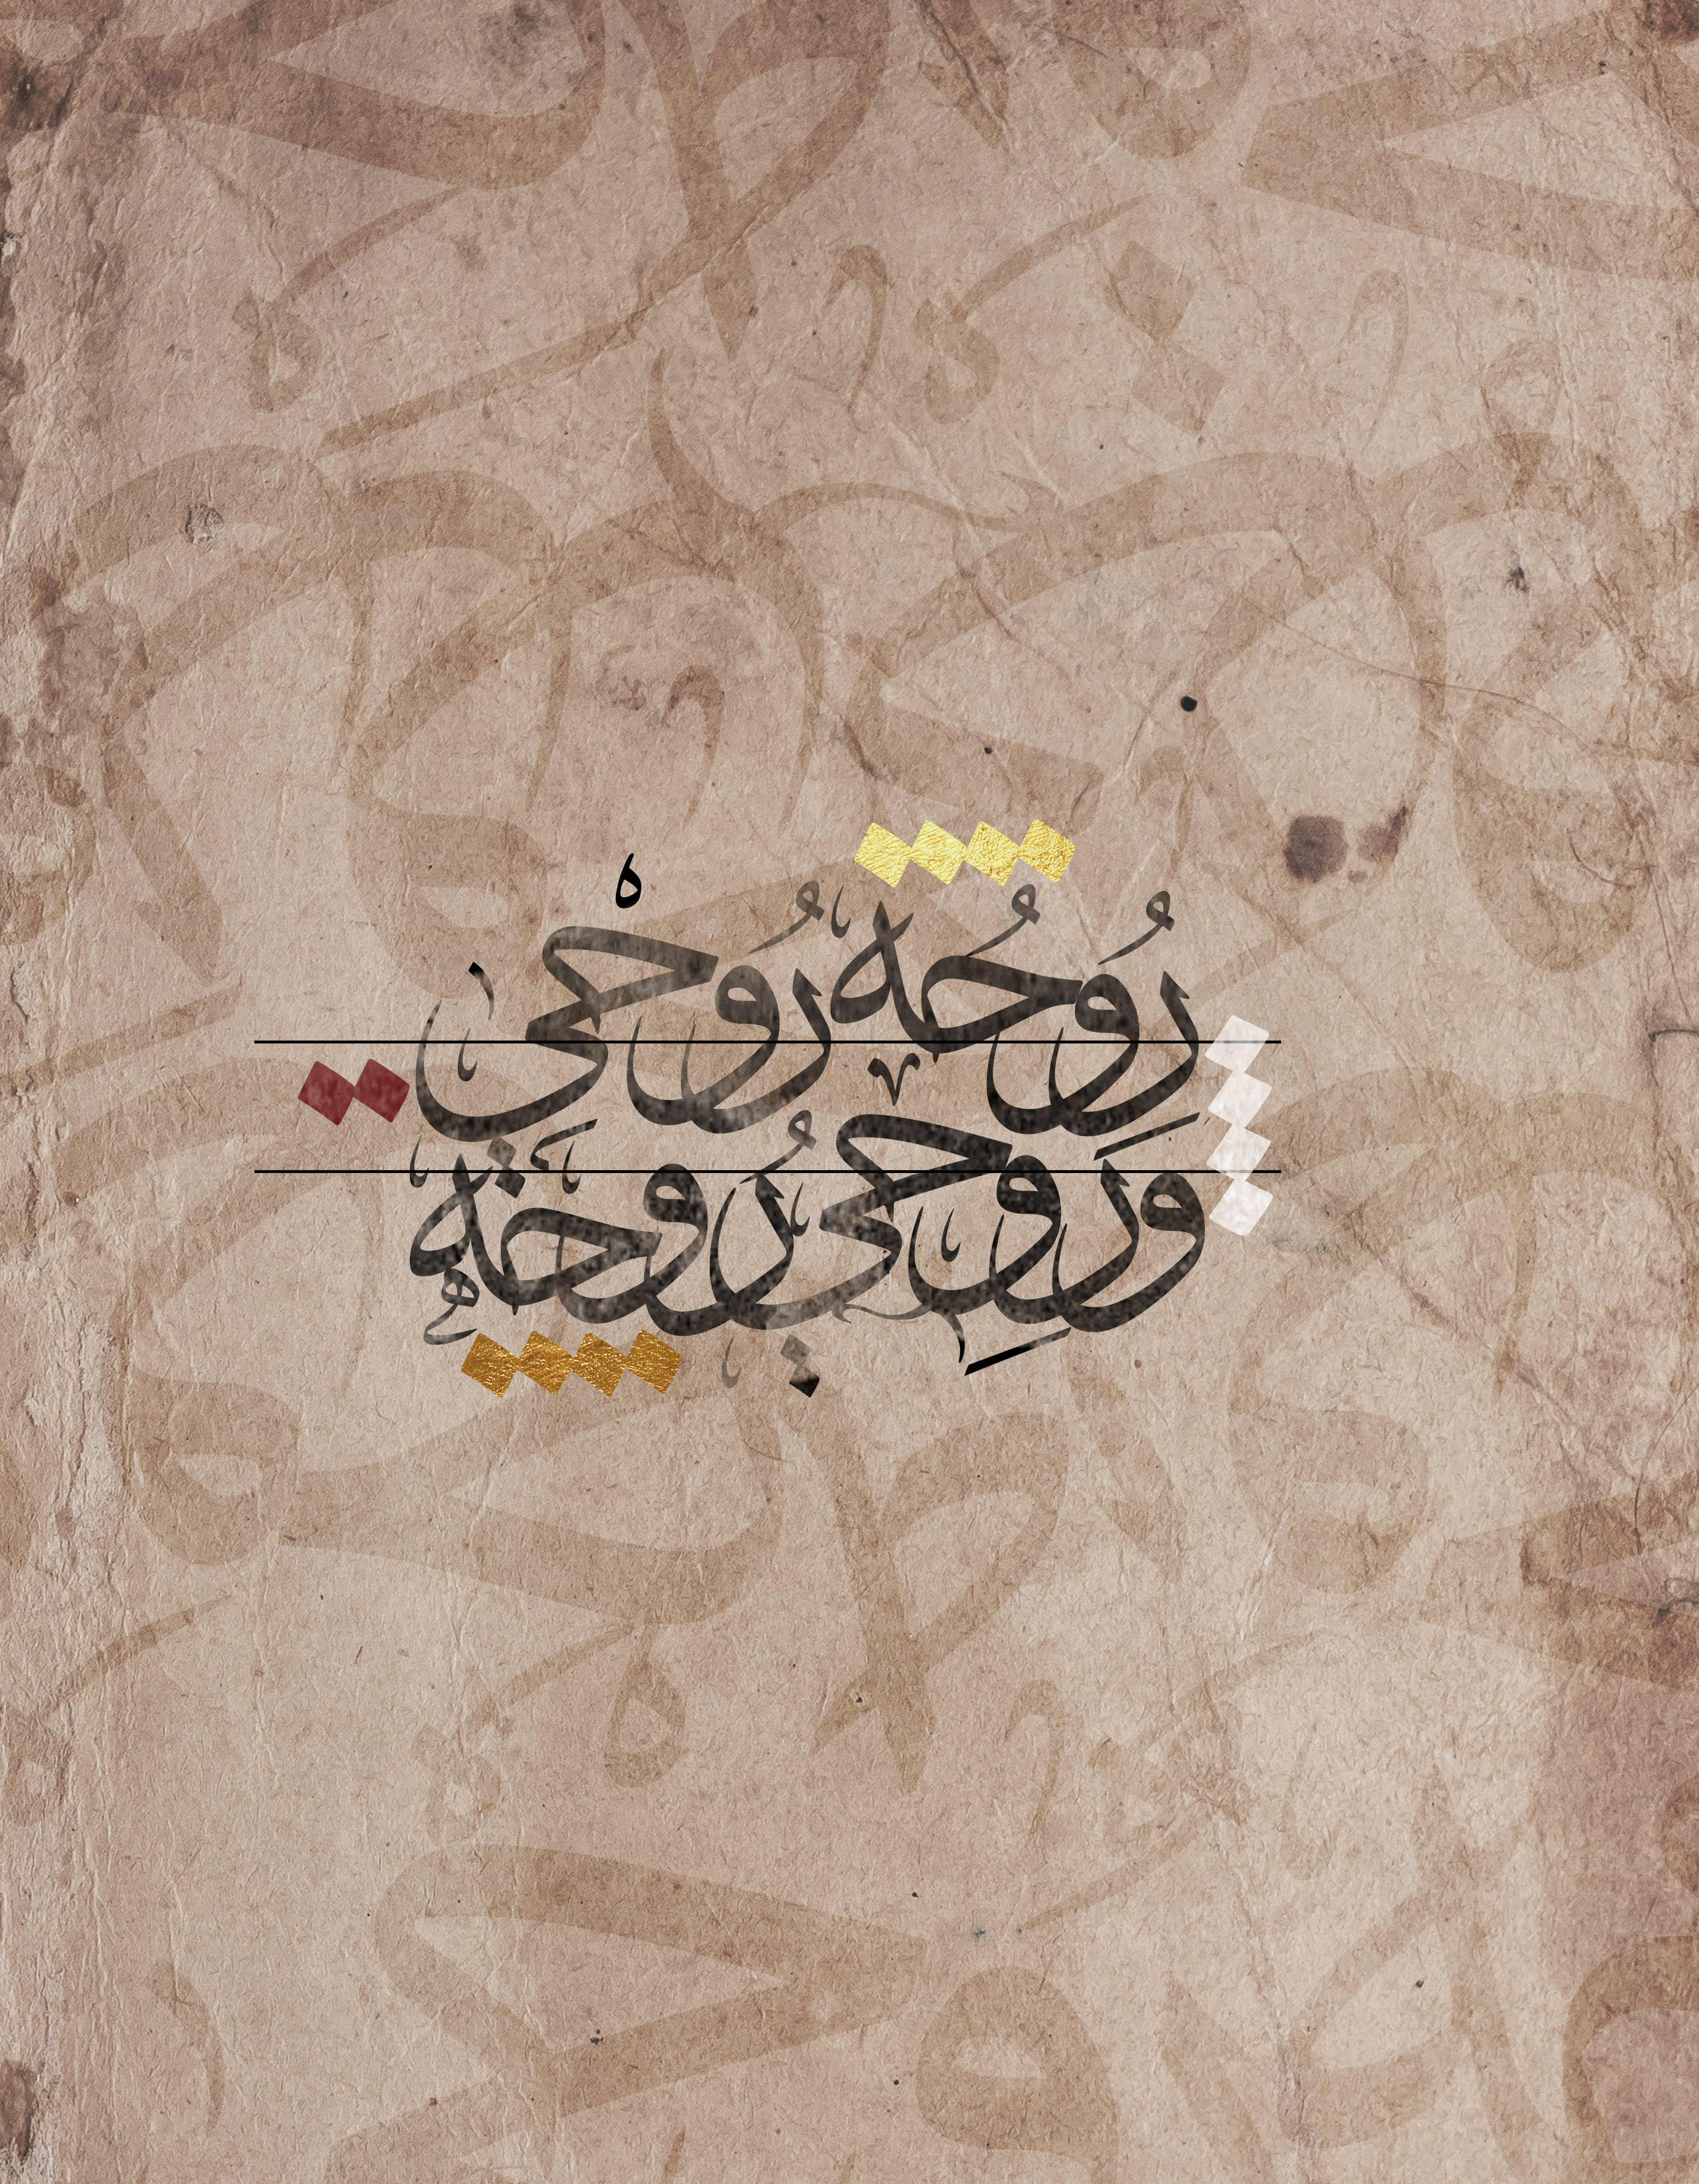 رُوحُه رُوحي
وَروحِي رُوحُه